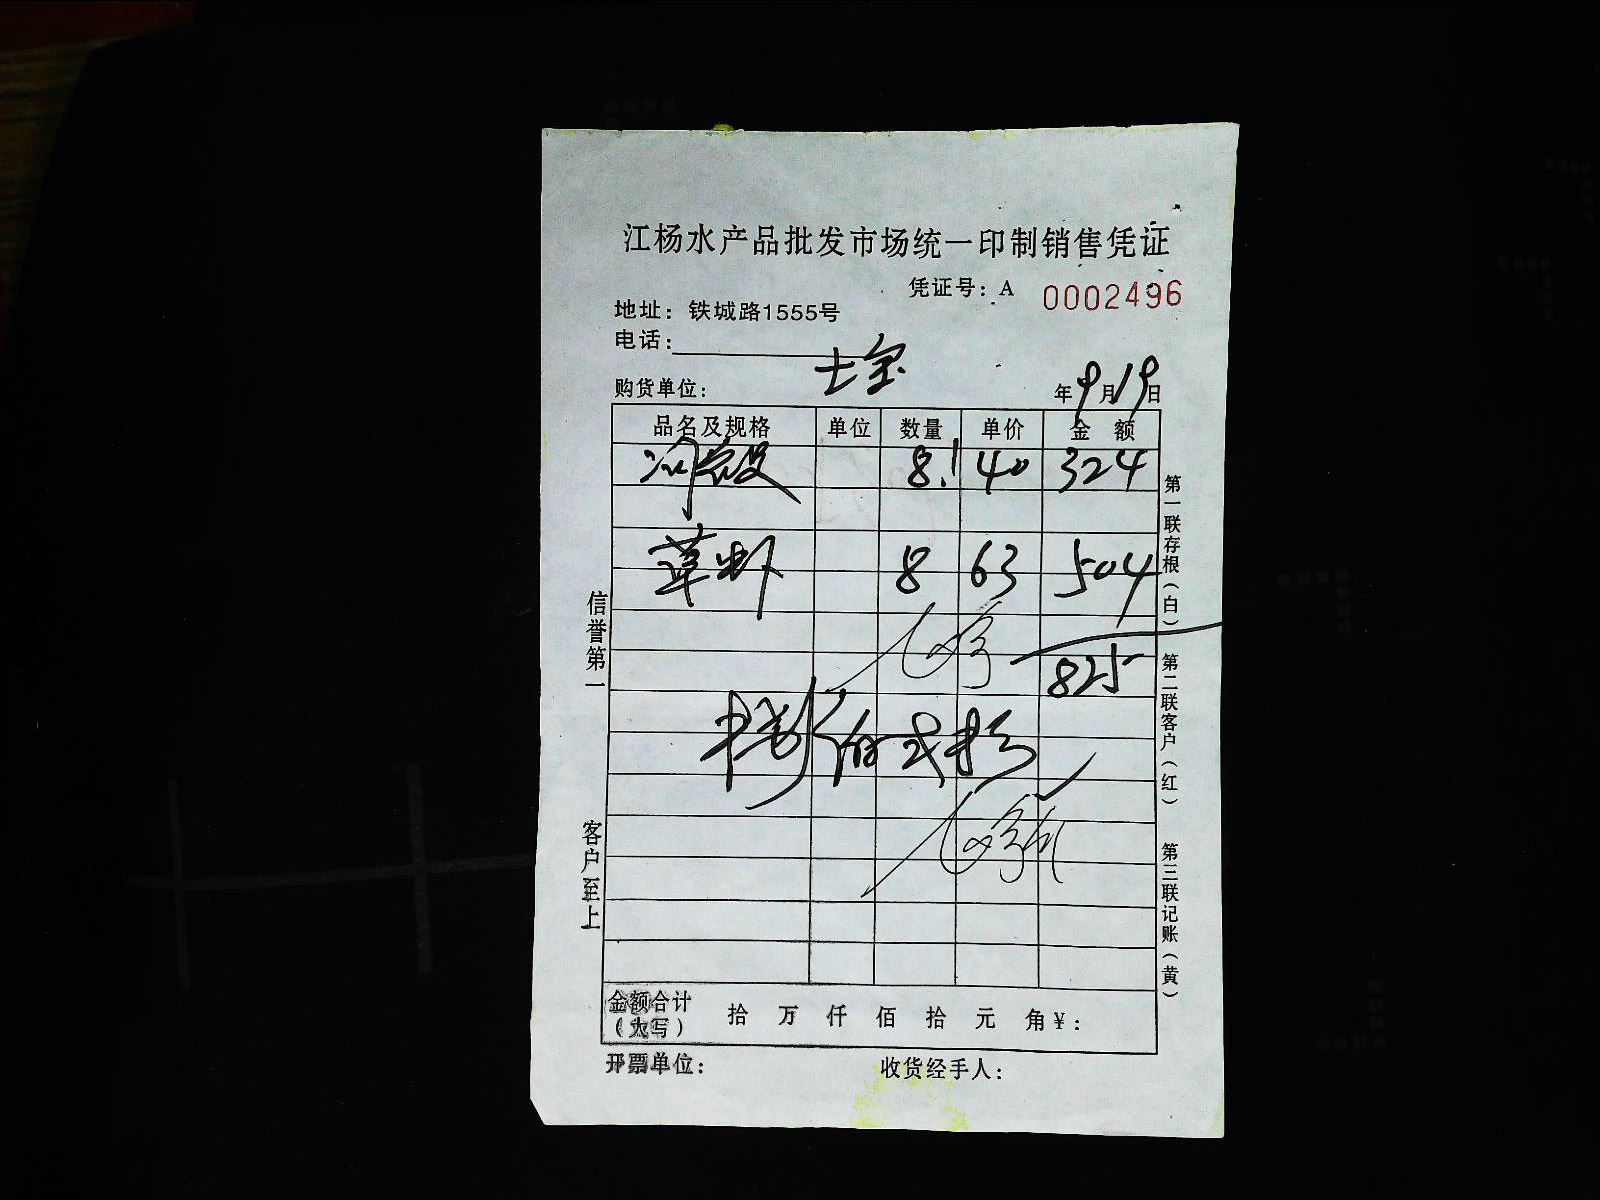 江杨水产品批发市场统一印制销售凭证
凭证号：A 0002496
地址：铁城路1555号
电话：
购货单位：
年9月19日
品名及规格 单位 数量 单价 金额
8.1 40 324
草虾 8 63 504
825
捌佰弍拾
金额合计（大写） 拾 万 仟 佰 拾 元 角 ¥：
开票单位： 收货经手人：
信誉第一
客户至上
第一联存根（白） 第二联客户（红） 第三联记账（黄）